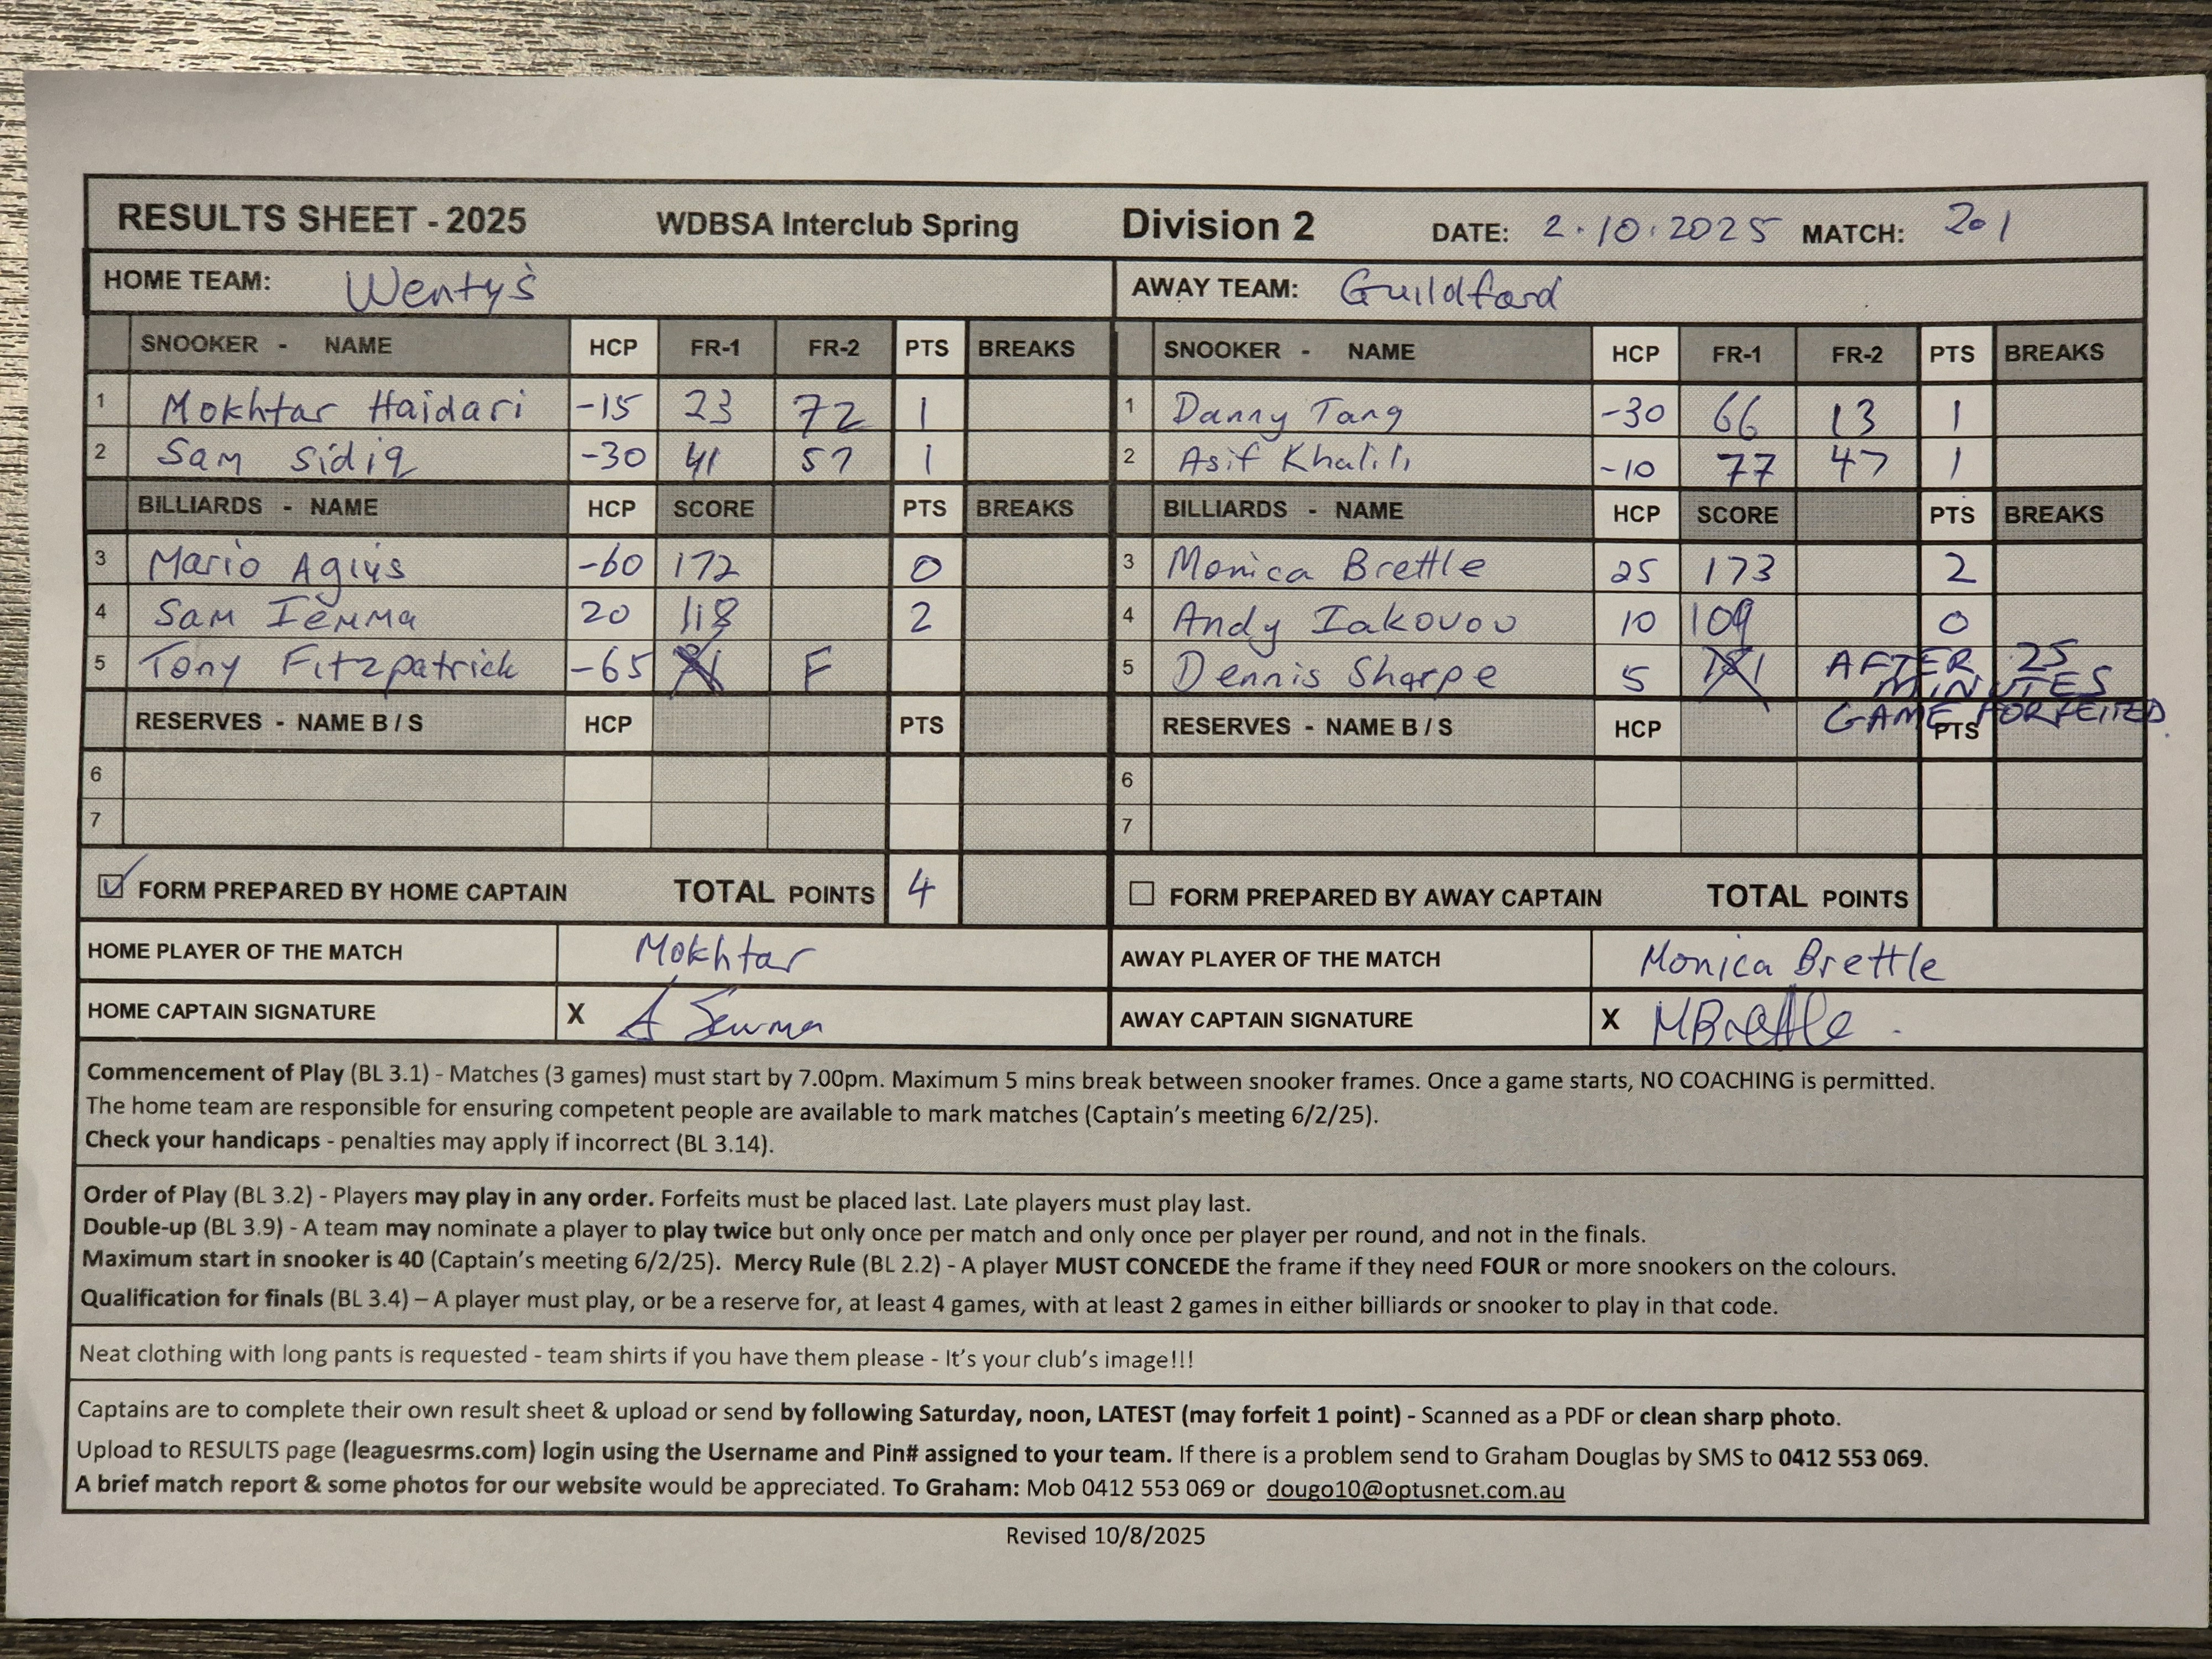 RESULTS SHEET - 2025 WDBSA Interclub Spring Division 2 DATE: 2.10.2025 MATCH: 201
HOME TEAM: Wenty's AWAY TEAM: Guildford
SNOOKER - NAME HCP FR-1 FR-2 PTS BREAKS SNOOKER - NAME HCP FR-1 FR-2 PTS BREAKS
1 Mokhtar Haidari -15 23 72 1 1 Danny Tang -30 66 13 1
2 Sam Sidiq -30 41 57 1 2 Asif Khalili -10 77 47 1
BILLIARDS - NAME HCP SCORE PTS BREAKS BILLIARDS - NAME HCP SCORE PTS BREAKS
3 Mario Agius -60 172 0 3 Monica Brettle 25 173 2
4 Sam Iemma 20 118 2 4 Andy Iakovou 10 109 0
5 Tony Fitzpatrick -65 F 5 Dennis Sharpe 5 AFTER 25
MINUTES
GAME FORFEITED
RESERVES - NAME B / S HCP PTS RESERVES - NAME B / S HCP PTS
6 6
7 7
FORM PREPARED BY HOME CAPTAIN TOTAL POINTS 4 FORM PREPARED BY AWAY CAPTAIN TOTAL POINTS
HOME PLAYER OF THE MATCH Mokhtar AWAY PLAYER OF THE MATCH Monica Brettle
HOME CAPTAIN SIGNATURE X AWAY CAPTAIN SIGNATURE X MBrettle
Commencement of Play (BL 3.1) - Matches (3 games) must start by 7.00pm. Maximum 5 mins break between snooker frames. Once a game starts, NO COACHING is permitted.
The home team are responsible for ensuring competent people are available to mark matches (Captain's meeting 6/2/25).
Check your handicaps - penalties may apply if incorrect (BL 3.14).
Order of Play (BL 3.2) - Players may play in any order. Forfeits must be placed last. Late players must play last.
Double-up (BL 3.9) - A team may nominate a player to play twice but only once per match and only once per player per round, and not in the finals.
Maximum start in snooker is 40 (Captain's meeting 6/2/25). Mercy Rule (BL 2.2) - A player MUST CONCEDE the frame if they need FOUR or more snookers on the colours.
Qualification for finals (BL 3.4) – A player must play, or be a reserve for, at least 4 games, with at least 2 games in either billiards or snooker to play in that code.
Neat clothing with long pants is requested - team shirts if you have them please - It's your club's image!!!
Captains are to complete their own result sheet & upload or send by following Saturday, noon, LATEST (may forfeit 1 point) - Scanned as a PDF or clean sharp photo.
Upload to RESULTS page (leaguesrms.com) login using the Username and Pin# assigned to your team. If there is a problem send to Graham Douglas by SMS to 0412 553 069.
A brief match report & some photos for our website would be appreciated. To Graham: Mob 0412 553 069 or dougo10@optusnet.com.au
Revised 10/8/2025